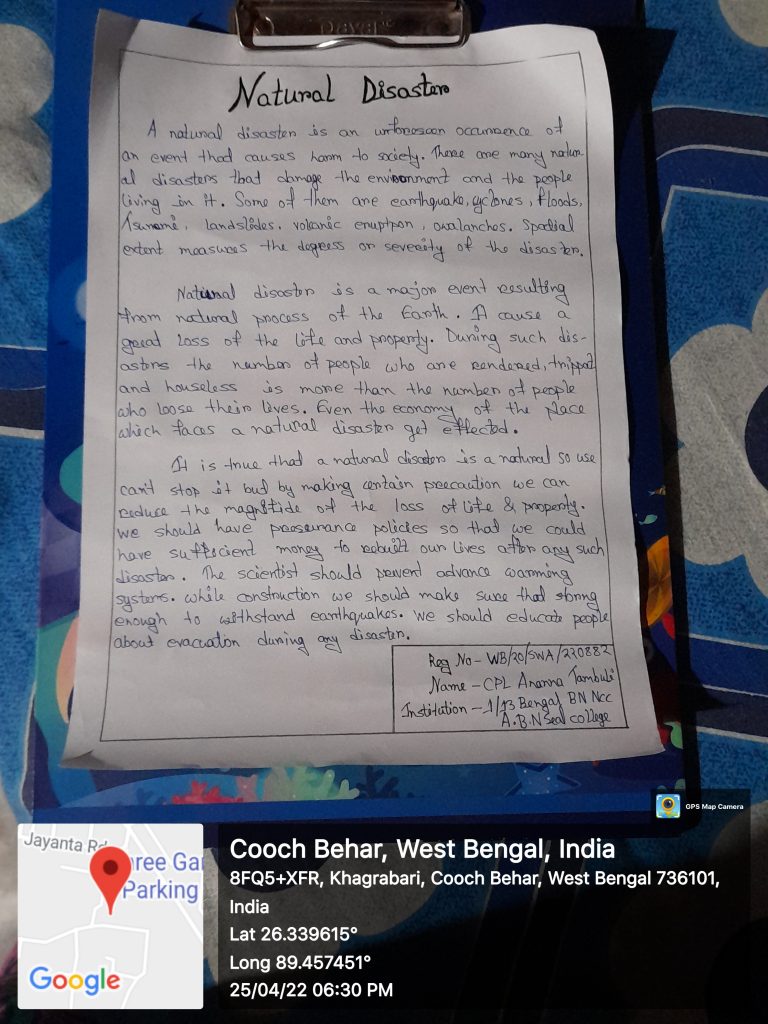 Natural Disaster
A natural disaster is an unforeseen occurrence of
an event that causes harm to society. There are many natur-
al disasters that damage the environment and the people
living in it. Some of them are earthquake, cyclones, floods,
Tsunami, landslides, volcanic eruption, avalanches. Spatial
extent measures the degress or severity of the disaster.
Natural disaster is a major event resulting
from natural process of the Earth. It cause a
great loss of the life and property. During such dis-
asters the number of people who are rendered,
and houseless is more than the number of people
who loose their lives. Even the economy of the place
which faces a natural disaster get effected.
It is true that a natural disaster is a natural so we
can't stop it but by making certain precaution we can
reduce the magnitide of the loss of life & property.
We should have policies so that we could
have sufficient money to rebuilt our lives after any such
disaster. The scientist should prevent advance warming
systems. While construction we should make sure that strong
enough to withstand earthquakes. We should educate people
about evacuation during any disaster.
Reg No - WB/20/SWA/220882
Name - CPL Ananna Tambuli
Institution - 1/13 Bengal BN NCC
A.B.N Seal college
GPS Map Camera
Jayanta Rd
ree Gar
Parking
Google
Cooch Behar, West Bengal, India
8FQ5+XFR, Khagrabari, Cooch Behar, West Bengal 736101,
India
Lat 26.339615°
Long 89.457451°
25/04/22 06:30 PM